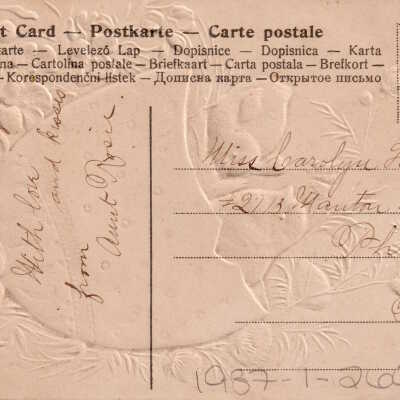 t Card — Postkarte — Carte postale
karte — Levelező Lap — Dopisnice — Dopisnica — Karta
na — Cartolina postale — Briefkaart — Carta postala — Brefkort —
— Korespondenční listek — Дописна карта — Открытое письмо
With love
and kisses
from
Aunt Rosie.
Miss Carolyn
4273 Manton
1937-1-26